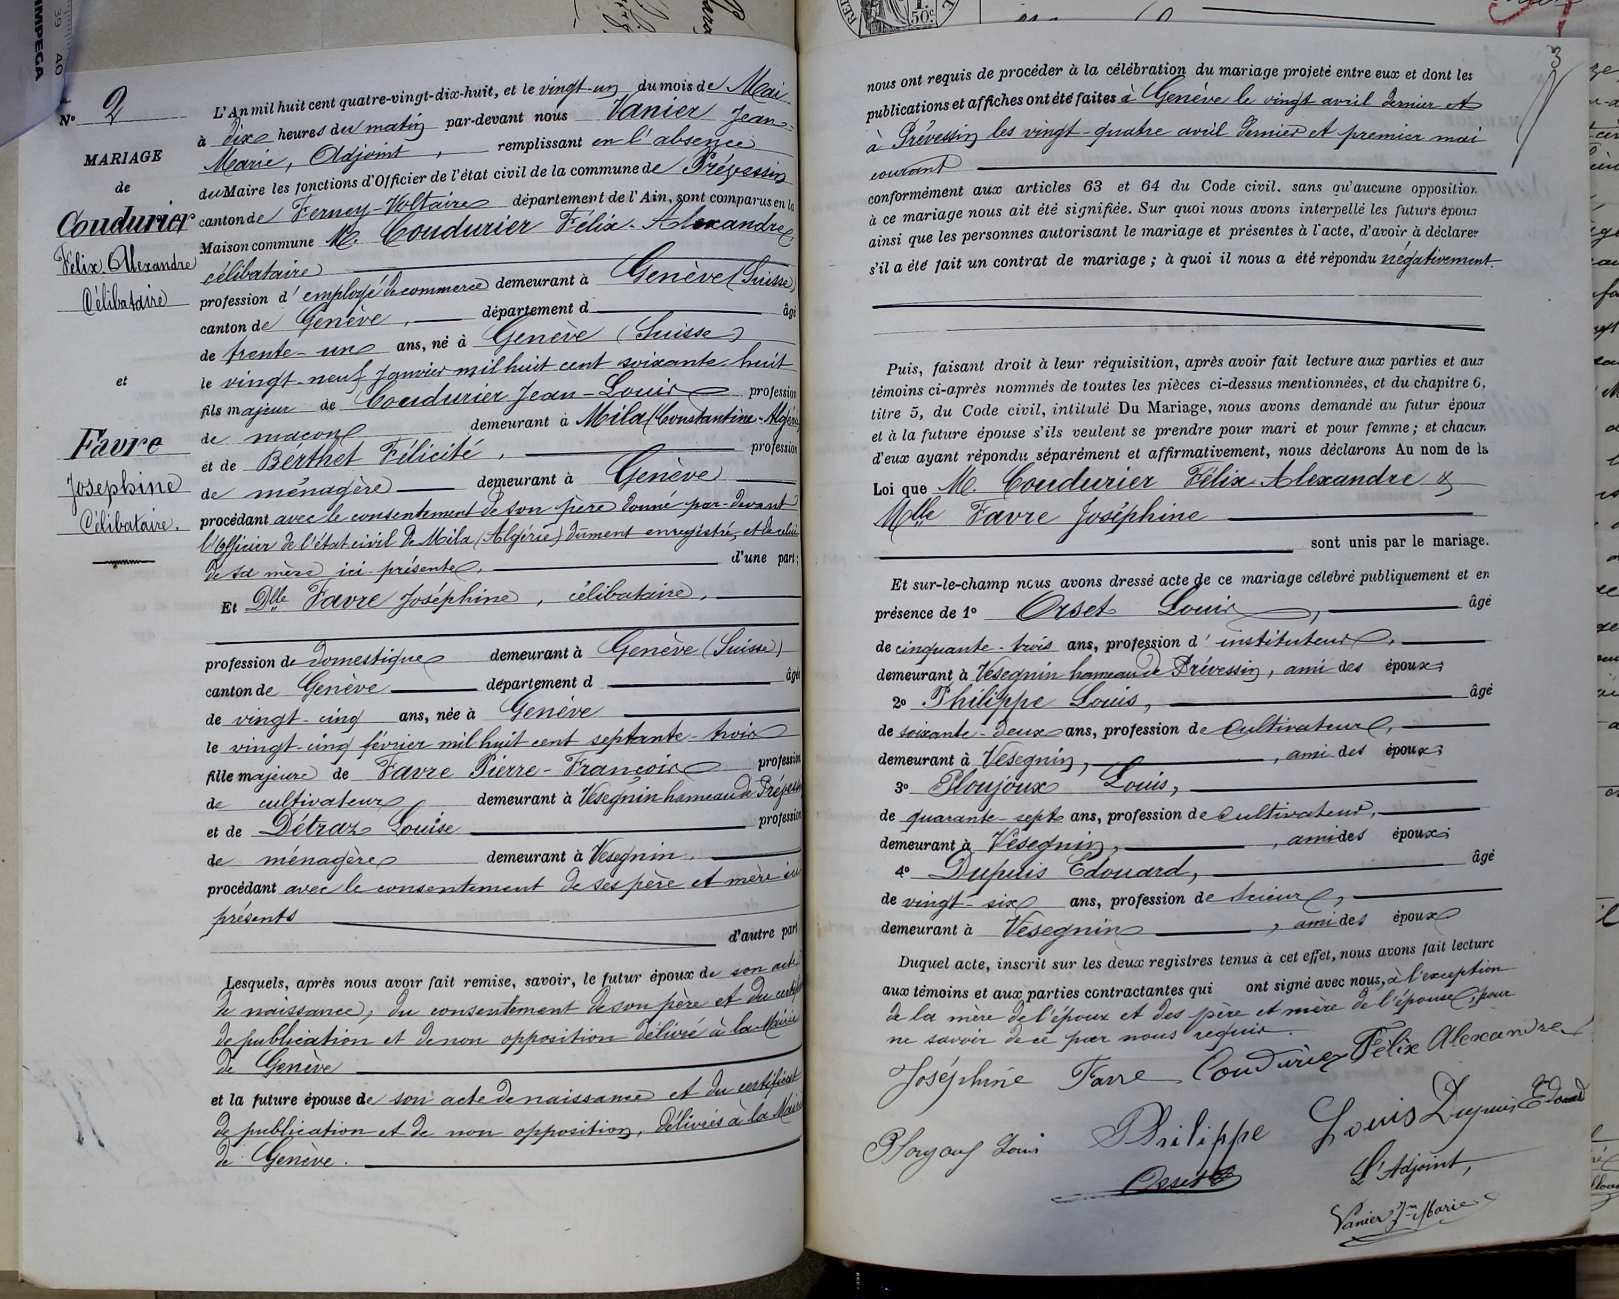 N° 2
MARIAGE
de
Coudurier
Félix Alexandre
Célibataire
et
Favre
Joséphine
Célibataire.
L'An mil huit cent quatre-vingt-dix-huit, et le vingt-un du mois de Mai
à dix heures du matin par-devant nous Vanier Jean-
Marie, Adjoint, remplissant en l'absence
du Maire les fonctions d'Officier de l'état civil de la commune de Prévessin
canton de Ferney-Voltaire département de l'Ain, sont comparus en la
Maison commune M. Coudurier Félix-Alexandre
célibataire
profession d'employé de commerce demeurant à Genève (Suisse)
canton de Genève, département d âgé
de trente-un ans, né à Genève (Suisse)
le vingt-neuf Janvier mil huit cent soixante-huit
fils majeur de Coudurier Jean-Louis profession
de maçon demeurant à Mila (Constantine-Algérie
et de Berthet Félicité, profession
de ménagère demeurant à Genève
procédant avec le consentement de son père donné par-devant
l'Officier de l'état civil de Mila (Algérie) dûment enregistré, et de celui
de sa mère ici présente, d'une part;
Et Dlle Favre Joséphine, célibataire,
profession de domestique demeurant à Genève (Suisse)
canton de Genève département d âgée
de vingt-cinq ans, née à Genève
le vingt-cinq février mil huit cent septante-trois
fille majeure de Favre Pierre-François profession
de cultivateur demeurant à Vésegnin hameau de Prévessin
et de Détraz Louise profession
de ménagère demeurant à Vesegnin.
procédant avec le consentement de ses père et mère ici
présents
d'autre part
Lesquels, après nous avoir fait remise, savoir, le futur époux de son acte
de naissance, du consentement de son père et du certificat
de publication et de non opposition délivré à la Mairie
de Genève
et la future épouse de son acte de naissance et du certificat
de publication et de non opposition, délivrés à la Mairie
de Genève.
3
nous ont requis de procéder à la célébration du mariage projeté entre eux et dont les
publications et affiches ont été faites à Genève le vingt avril dernier et
à Prévessin les vingt-quatre avril dernier et premier mai
courant
conformément aux articles 63 et 64 du Code civil. sans qu'aucune opposition
à ce mariage nous ait été signifiée. Sur quoi nous avons interpellé les futurs époux
ainsi que les personnes autorisant le mariage et présentes à l'acte, d'avoir à déclarer
s'il a été fait un contrat de mariage; à quoi il nous a été répondu négativement.
Puis, faisant droit à leur réquisition, après avoir fait lecture aux parties et aux
témoins ci-après nommés de toutes les pièces ci-dessus mentionnées, et du chapitre 6,
titre 5, du Code civil, intitulé Du Mariage, nous avons demandé au futur époux
et à la future épouse s'ils veulent se prendre pour mari et pour femme; et chacun
d'eux ayant répondu séparément et affirmativement, nous déclarons Au nom de la
Loi que M. Coudurier Félix-Alexandre &
Mlle Favre Joséphine
sont unis par le mariage.
Et sur-le-champ nous avons dressé acte de ce mariage célébré publiquement et en
présence de 1° Orset Louis, âgé
de cinquante-trois ans, profession d'instituteur,
demeurant à Vesegnin hameau de Prévessin, ami des époux;
2° Philippe Louis, âgé
de soixante-deux ans, profession de cultivateur,
demeurant à Vesegnin, , ami des époux;
3° Ploujoux Louis,
de quarante-sept ans, profession de cultivateur,
demeurant à Vésegnin, , ami des époux;
4° Dupuis Edouard, âgé
de vingt-six ans, profession de scieur,
demeurant à Vésegnin , ami des époux
Duquel acte, inscrit sur les deux registres tenus à cet effet, nous avons fait lecture
aux témoins et aux parties contractantes qui ont signé avec nous, à l'exception
de la mère de l'époux et des père et mère de l'épouse, pour
ne savoir de ce par nous requis.
Joséphine Favre Coudurier Félix Alexandre
Ploujoux Louis Philippe Louis Dupuis Edouard
Orset L'Adjoint,
Vanier Jn Marie